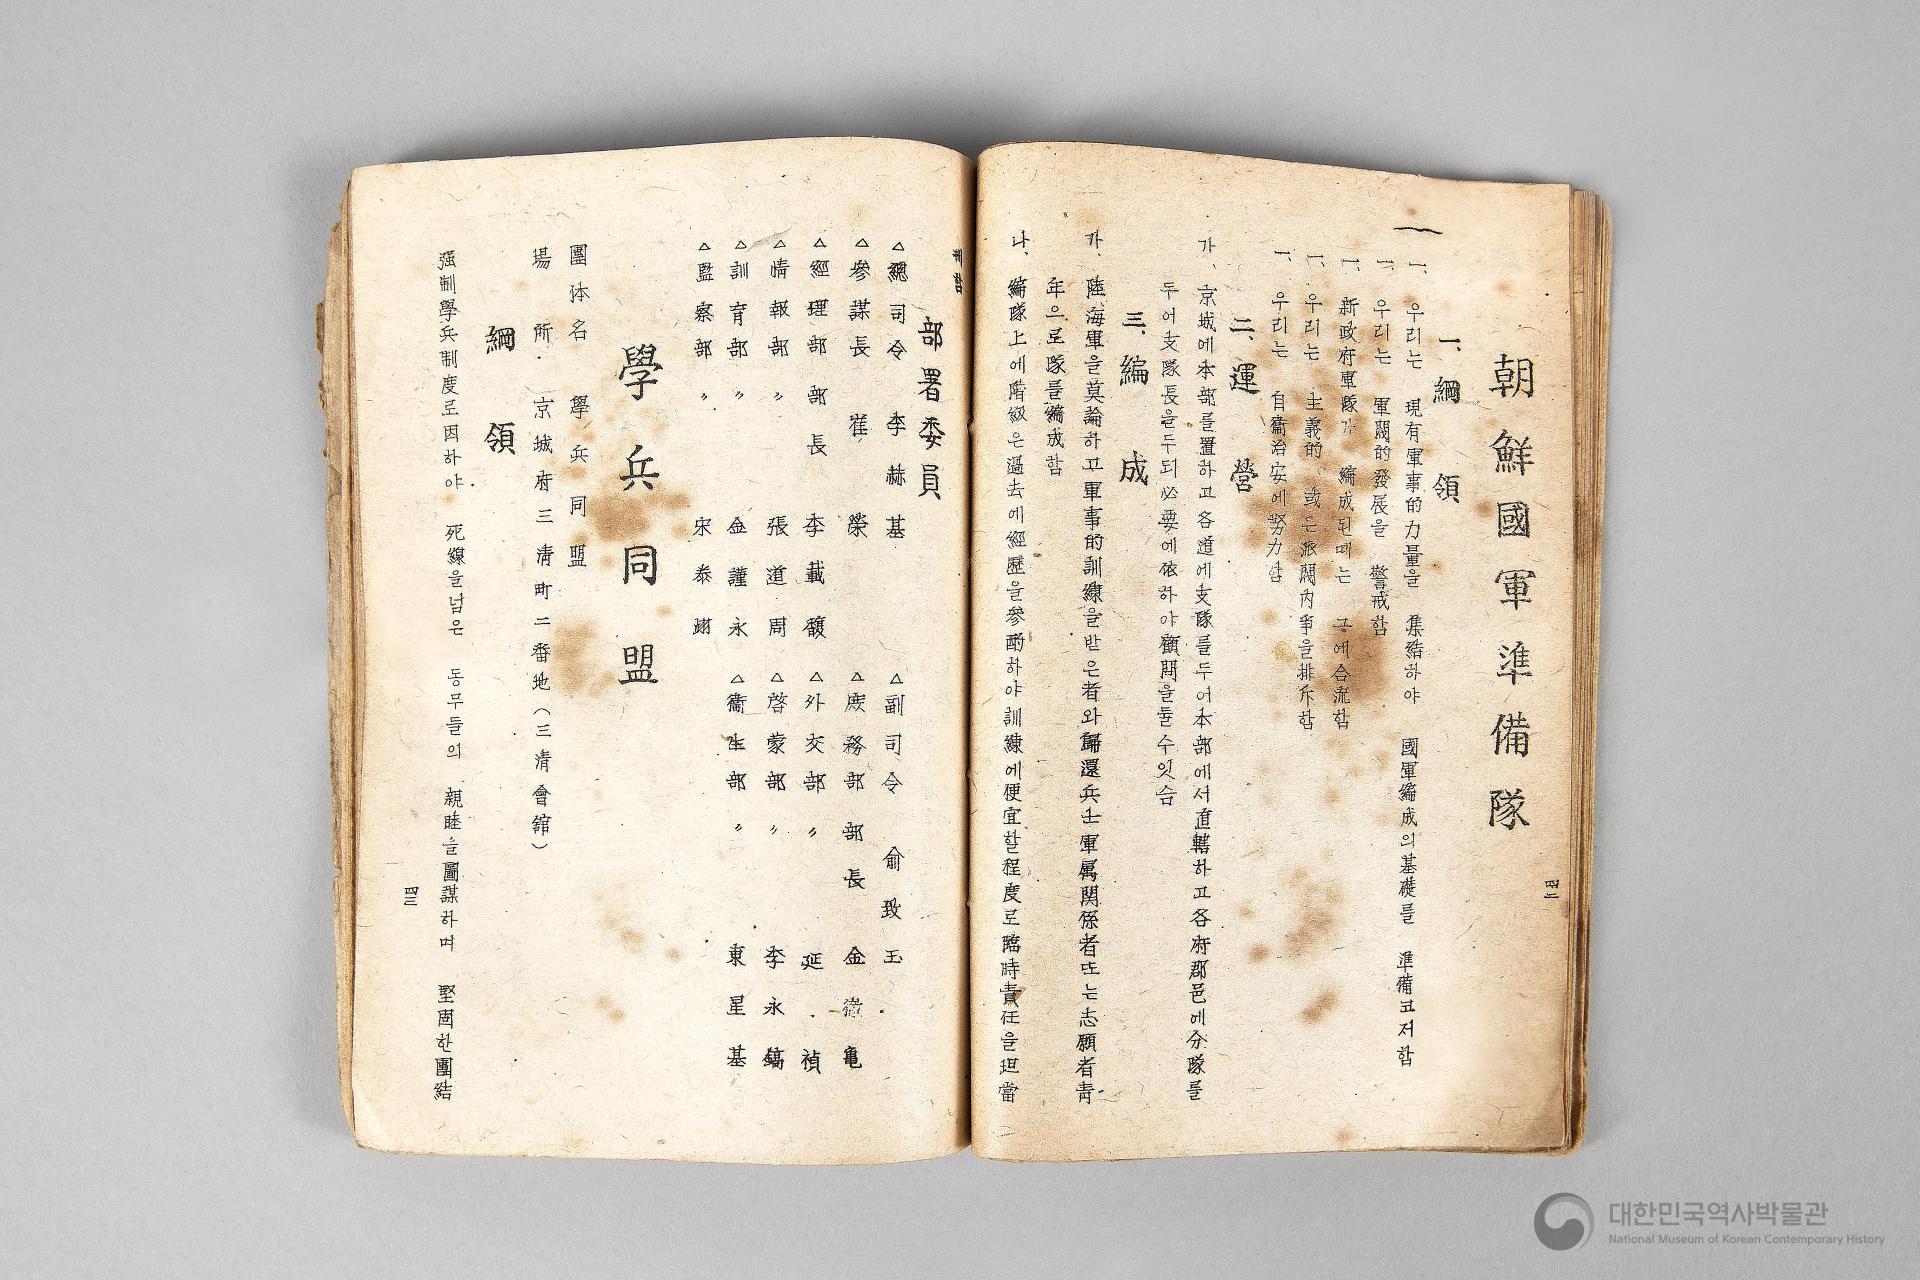 朝鮮國軍準備隊
一、綱領
一、우리는 現有軍事的力量을 集結하야 國軍編成의基礎를 準備코저함
一、우리는 軍閥的發展을 警戒함
一、新政府軍隊가 編成된때는 그에合流함
一、우리는 主義的 或은派閥內爭을排斥함
一、우리는 自衛治安에努力함
二、運營
가、京城에本部를置하고各道에支隊를두어本部에서直轄하고各府郡邑에分隊를
두어支隊長을두되必要에依하야顧問을둘수잇슴
三、編成
가、陸海軍을莫論하고軍事的訓練을받은者와歸還兵士軍属関係者또는志願者靑
年으로隊를編成함
나、編隊上에階級은過去에經歷을參酌하야訓練에便宜할程度로臨時責任을担當
四二
部署委員
△總司令 李赫基 △副司令 俞致玉
△參謀長 崔榮 △庶務部部長 金衛亀
△經理部部長 李載馥 △外交部〃 延禎
△情報部〃 張道周 △啓蒙部〃 李永鎬
△訓育部〃 金謹永 △衞生部〃 東星基
△監察部〃 宋泰翊
學兵同盟
團体名 學兵同盟
場所 京城府三淸町二番地(三淸會舘)
綱領
强制學兵制度로因하야 死線을넘은 동무들의 親睦을圖謀하며 堅固한團結
四三
대한민국역사박물관
National Museum of Korean Contemporary History